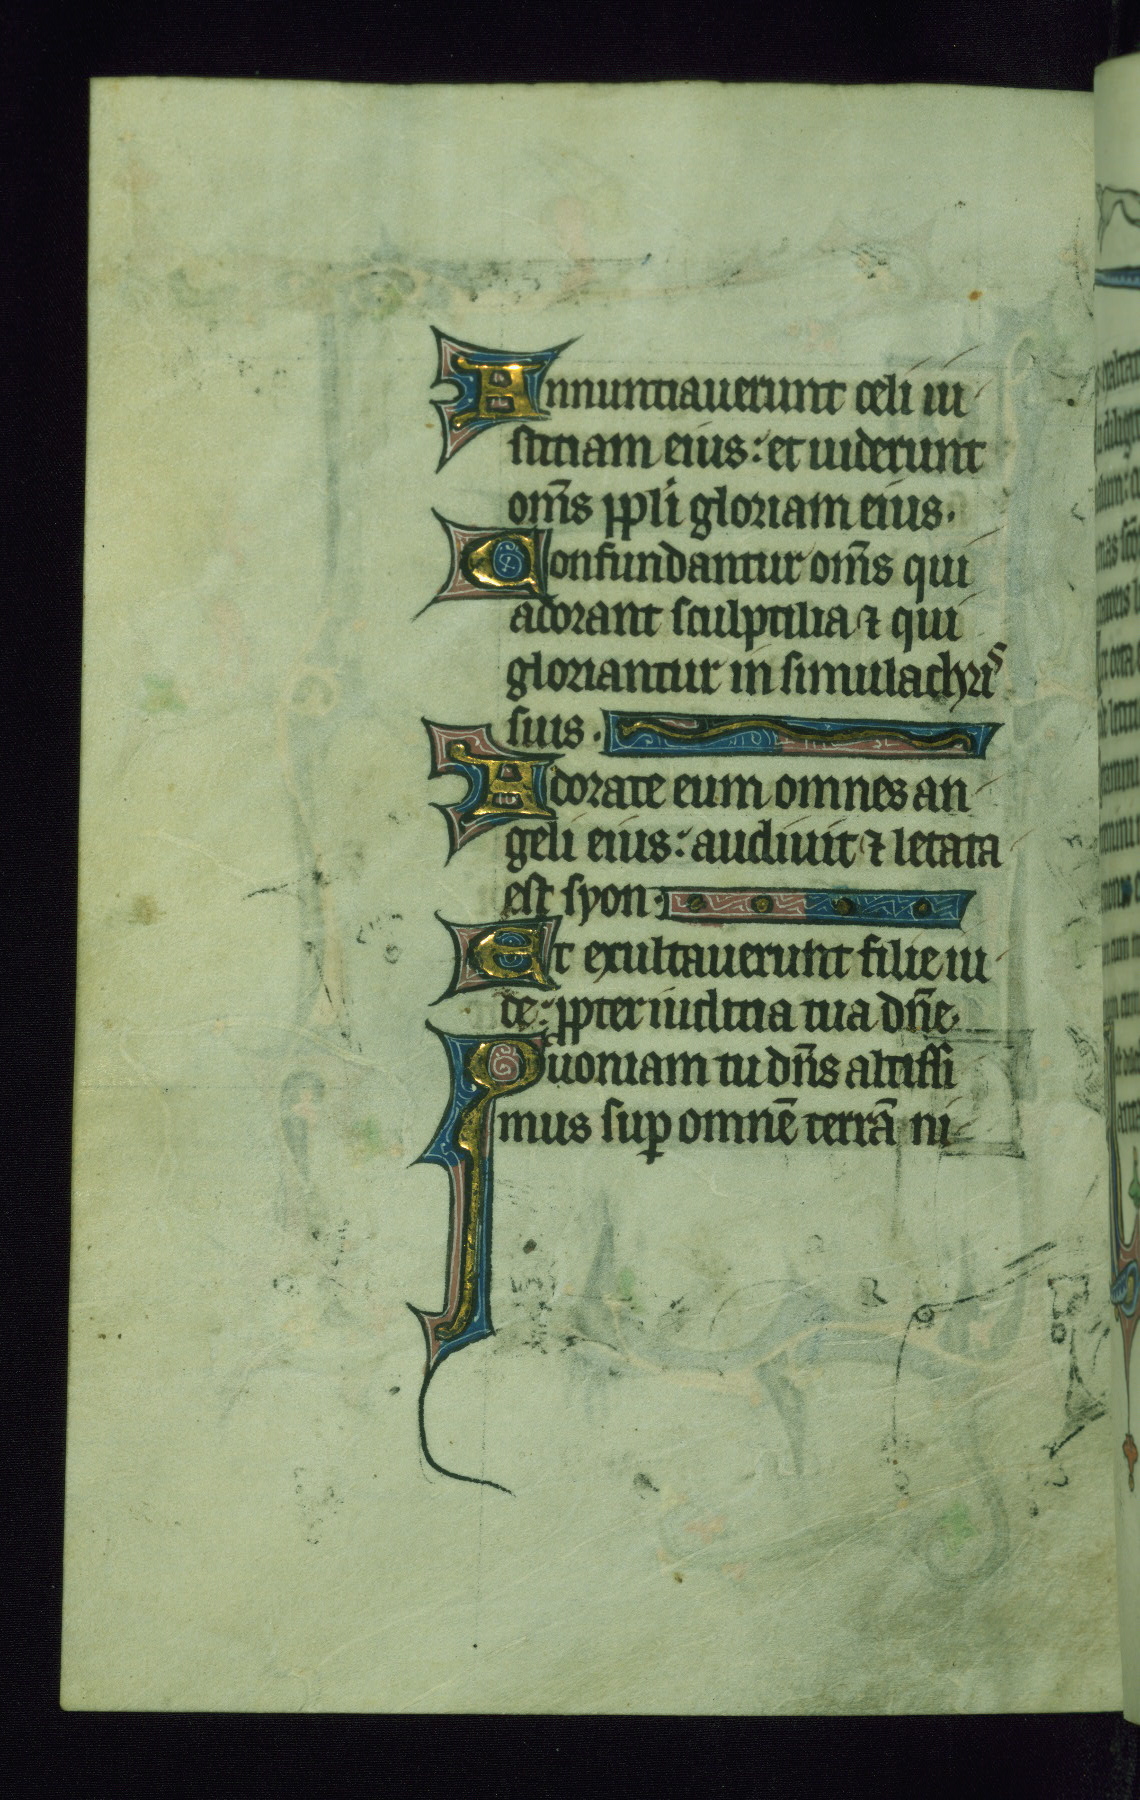 Annuntiauerunt celi iu
stitiam eius: et uiderunt
om̄s ppl̓i gloriam eius.
Confundantur om̄s qui
adorant sculptilia ⁊ qui
gloriantur in simulachris
suis.
Adorate eum omnes an
geli eius: audiuit ⁊ letata
est syon.
Et exultauerunt filie iu
de: ꝓpter iudicia tua dn̄e.
Quoniam tu dn̄s altissi
mus suꝑ omnē terrā ni